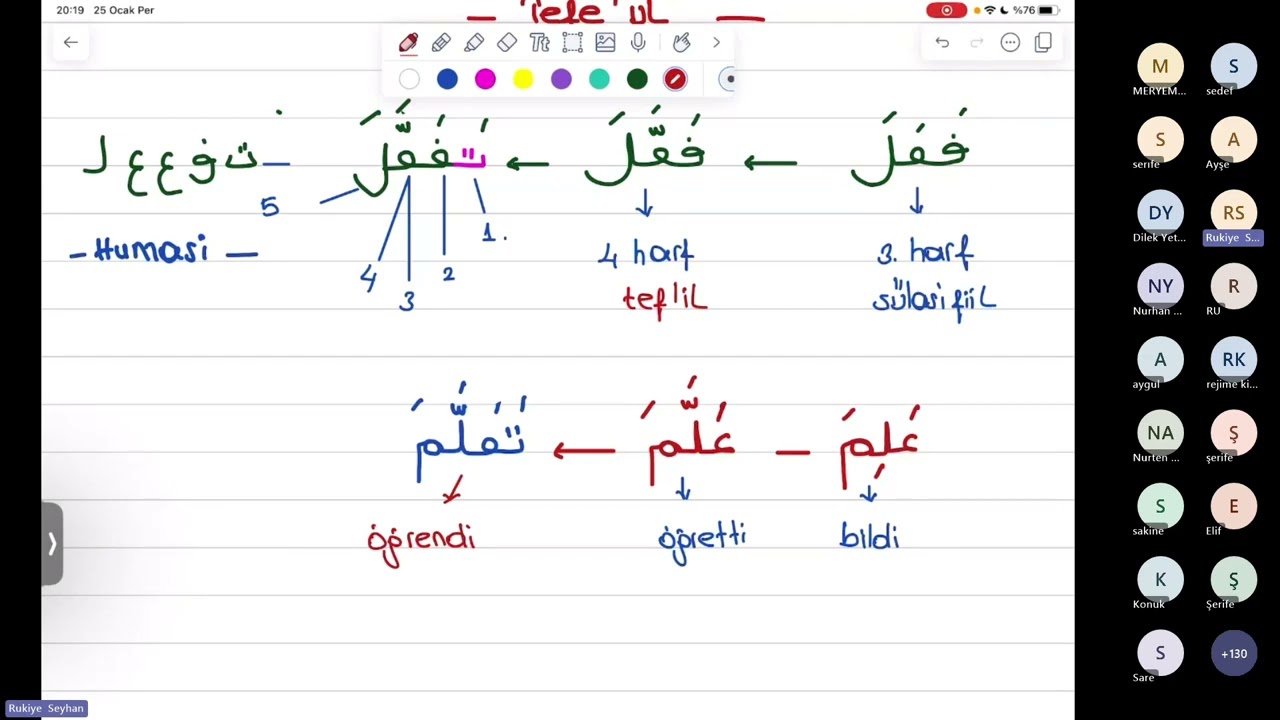 20:19 25 Ocak Per
%76
— Tefe'ul —
فَعَلَ ← فَعَّلَ ← تَفَعَّلَ — ت ف ع ع ل
3. harf
sülasi fiil
4 harf
teflil
1.
2
3
4
5
– Humasi —
عَلِمَ – عَلَّمَ ← تَعَلَّمَ
bildi
öğretti
öğrendi
MERYEM...
sedef
serife
Ayşe
Dilek Yet...
Rukiye S...
Nurhan ...
RU
aygul
rejime ki...
Nurten ...
şerife
sakine
Elif
Konuk
Şerife
Sare
+130
M
S
S
A
DY
RS
NY
R
A
RK
NA
Ş
S
E
K
Ş
S
Tt
Rukiye Seyhan